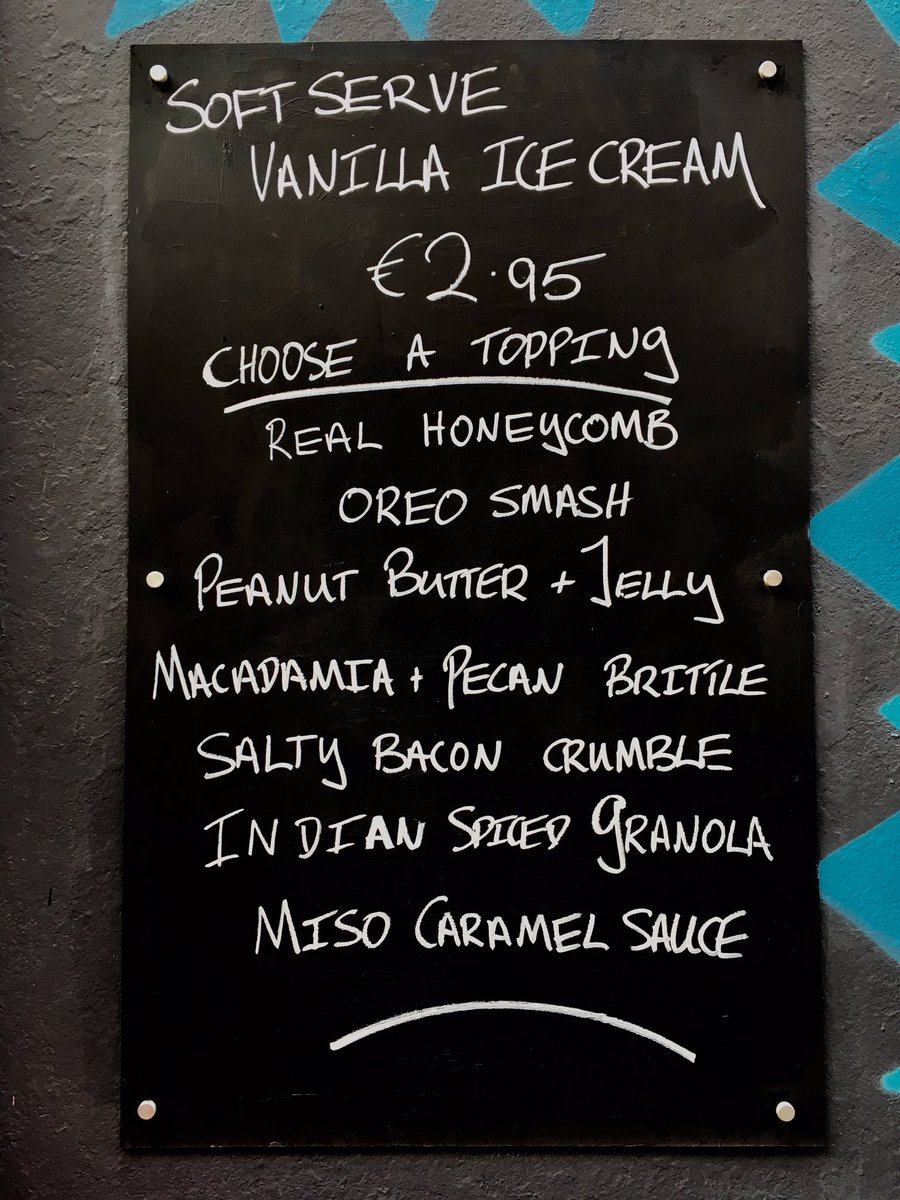 SOFT SERVE
VANILLA ICE CREAM
€2.95
CHOOSE A TOPPING
REAL HONEYCOMB
OREO SMASH
PEANUT BUTTER + JELLY
MACADAMIA + PECAN BRITTLE
SALTY BACON CRUMBLE
INDIAN SPICED GRANOLA
MISO CARAMEL SAUCE